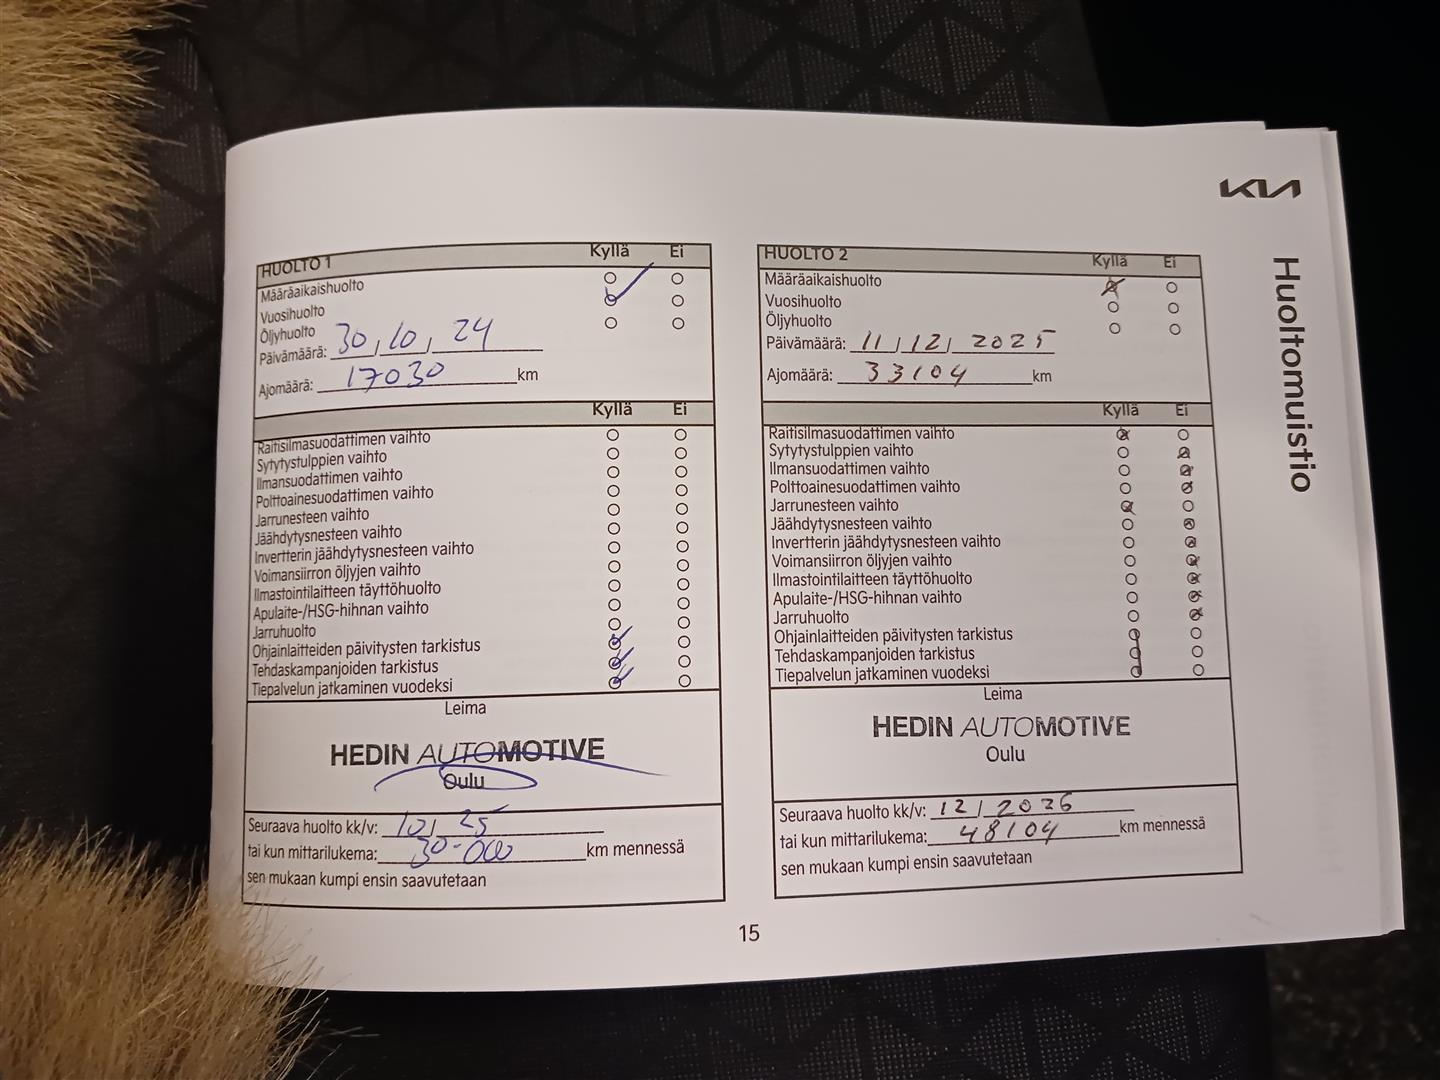 KIA
Huoltomuistio
HUOLTO 1 Kyllä Ei
Määräaikaishuolto
Vuosihuolto
Öljyhuolto
Päivämäärä: 30, 10, 24
Ajomäärä: 17030 km
Kyllä Ei
Raitisilmasuodattimen vaihto
Sytytystulppien vaihto
Ilmansuodattimen vaihto
Polttoainesuodattimen vaihto
Jarrunesteen vaihto
Jäähdytysnesteen vaihto
Invertterin jäähdytysnesteen vaihto
Voimansiirron öljyjen vaihto
Ilmastointilaitteen täyttöhuolto
Apulaite-/HSG-hihnan vaihto
Jarruhuolto
Ohjainlaitteiden päivitysten tarkistus
Tehdaskampanjoiden tarkistus
Tiepalvelun jatkaminen vuodeksi
Leima
HEDIN AUTOMOTIVE
Oulu
Seuraava huolto kk/v: 10/ 25
tai kun mittarilukema: 30-000 km mennessä
sen mukaan kumpi ensin saavutetaan
HUOLTO 2 Kyllä Ei
Määräaikaishuolto
Vuosihuolto
Öljyhuolto
Päivämäärä: 11/12/ 2025
Ajomäärä: 33104 km
Kyllä Ei
Raitisilmasuodattimen vaihto
Sytytystulppien vaihto
Ilmansuodattimen vaihto
Polttoainesuodattimen vaihto
Jarrunesteen vaihto
Jäähdytysnesteen vaihto
Invertterin jäähdytysnesteen vaihto
Voimansiirron öljyjen vaihto
Ilmastointilaitteen täyttöhuolto
Apulaite-/HSG-hihnan vaihto
Jarruhuolto
Ohjainlaitteiden päivitysten tarkistus
Tehdaskampanjoiden tarkistus
Tiepalvelun jatkaminen vuodeksi
Leima
HEDIN AUTOMOTIVE
Oulu
Seuraava huolto kk/v: 12/2026
tai kun mittarilukema: 48104 km mennessä
sen mukaan kumpi ensin saavutetaan
15